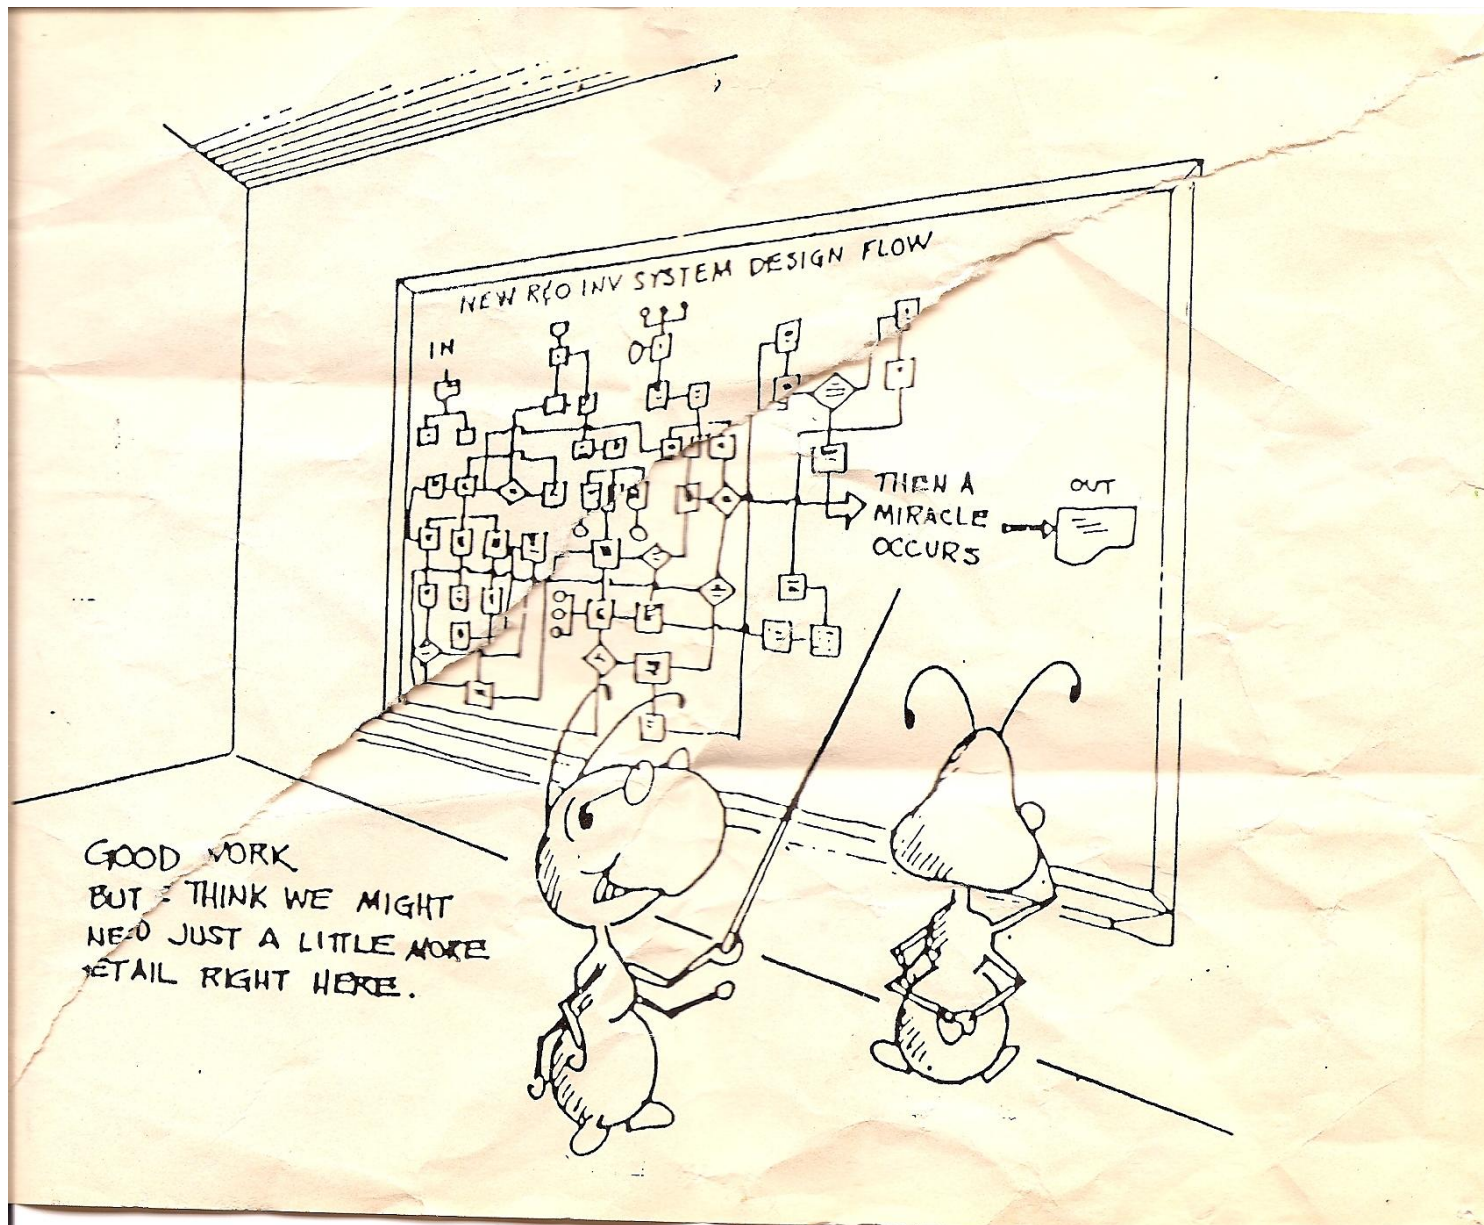 NEW R&O INV SYSTEM DESIGN FLOW
IN
THEN A
MIRACLE
OCCURS
OUT
GOOD WORK
BUT I THINK WE MIGHT
NEED JUST A LITTLE MORE
DETAIL RIGHT HERE.